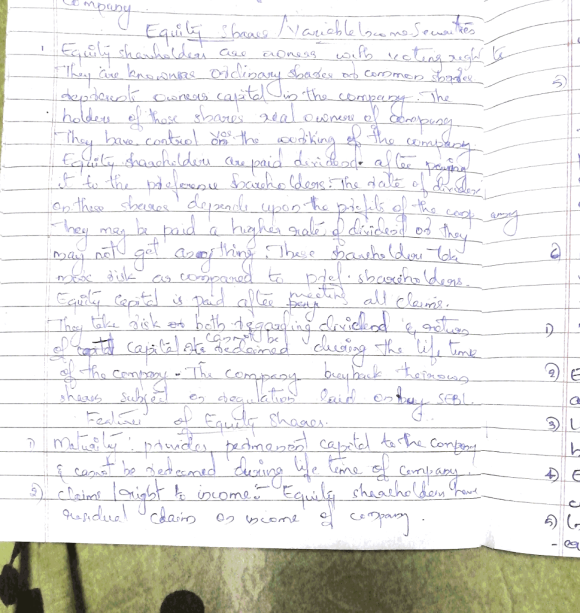 Company
Equity shares / Variable Income Securities
1. Equity shareholders are owners with voting right
They are known as ordinary shares or common shares
represents owners capital in the company. The
holders of these shares real owners of company.
They have control over the working of the company
Equity shareholders are paid dividend after paying
it to the preference shareholders. The rate of dividend
on these shares depends upon the profits of the company
They may be paid a higher rate of dividend or they
may not get anything. These shareholders take
more risk as compared to pref. shareholders.
Equity Capital is paid after meeting all claims.
They take risk both regarding dividend & return
of capital. cannot be redeemed during the life time
of the company. The company buyback their own
shares subject regulation laid by SEBI.
Features of Equity Shares.
1) Maturity: provides permanent capital to the company
& cannot be redeemed during life time of company
2) claims / right to income: Equity shareholders have
residual claim on income of company.
5)
6)
1)
2) E
3) L
4) E
5)